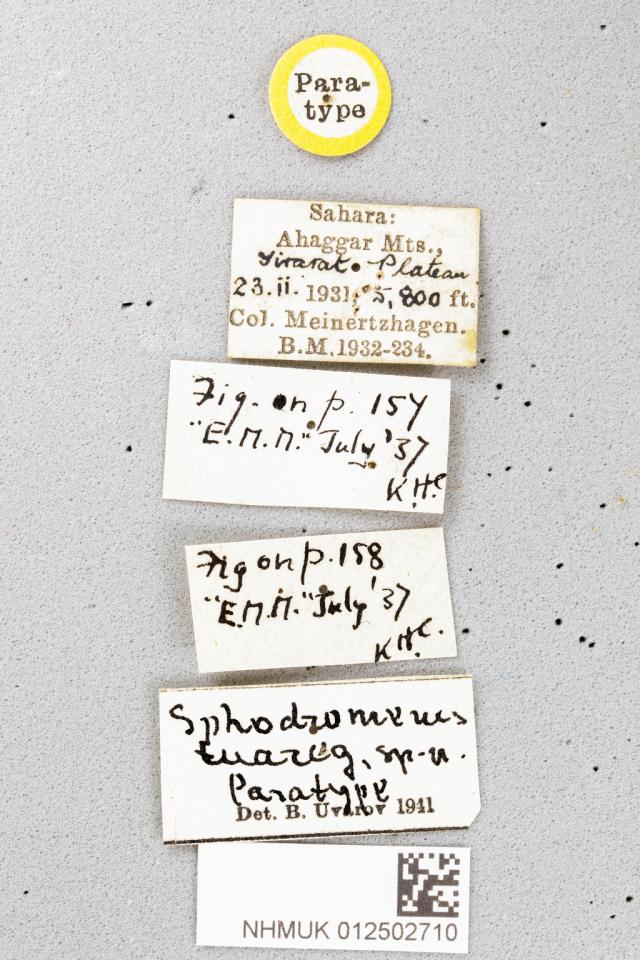 Para-
type
Sahara:
Ahaggar Mts.,
Tirarat Plateau
23.ii. 1931, 5,800 ft.
Col. Meinertzhagen.
B.M.1932-234.
Fig. on p. 157
"E.M.M." July '37
K.H.C
Fig on p. 158
"E.M.M." July '37
K.H.C.
Sphodromerus
tuareg, sp.n.
Paratype
Det. B. Uvarov 1941
NHMUK 012502710